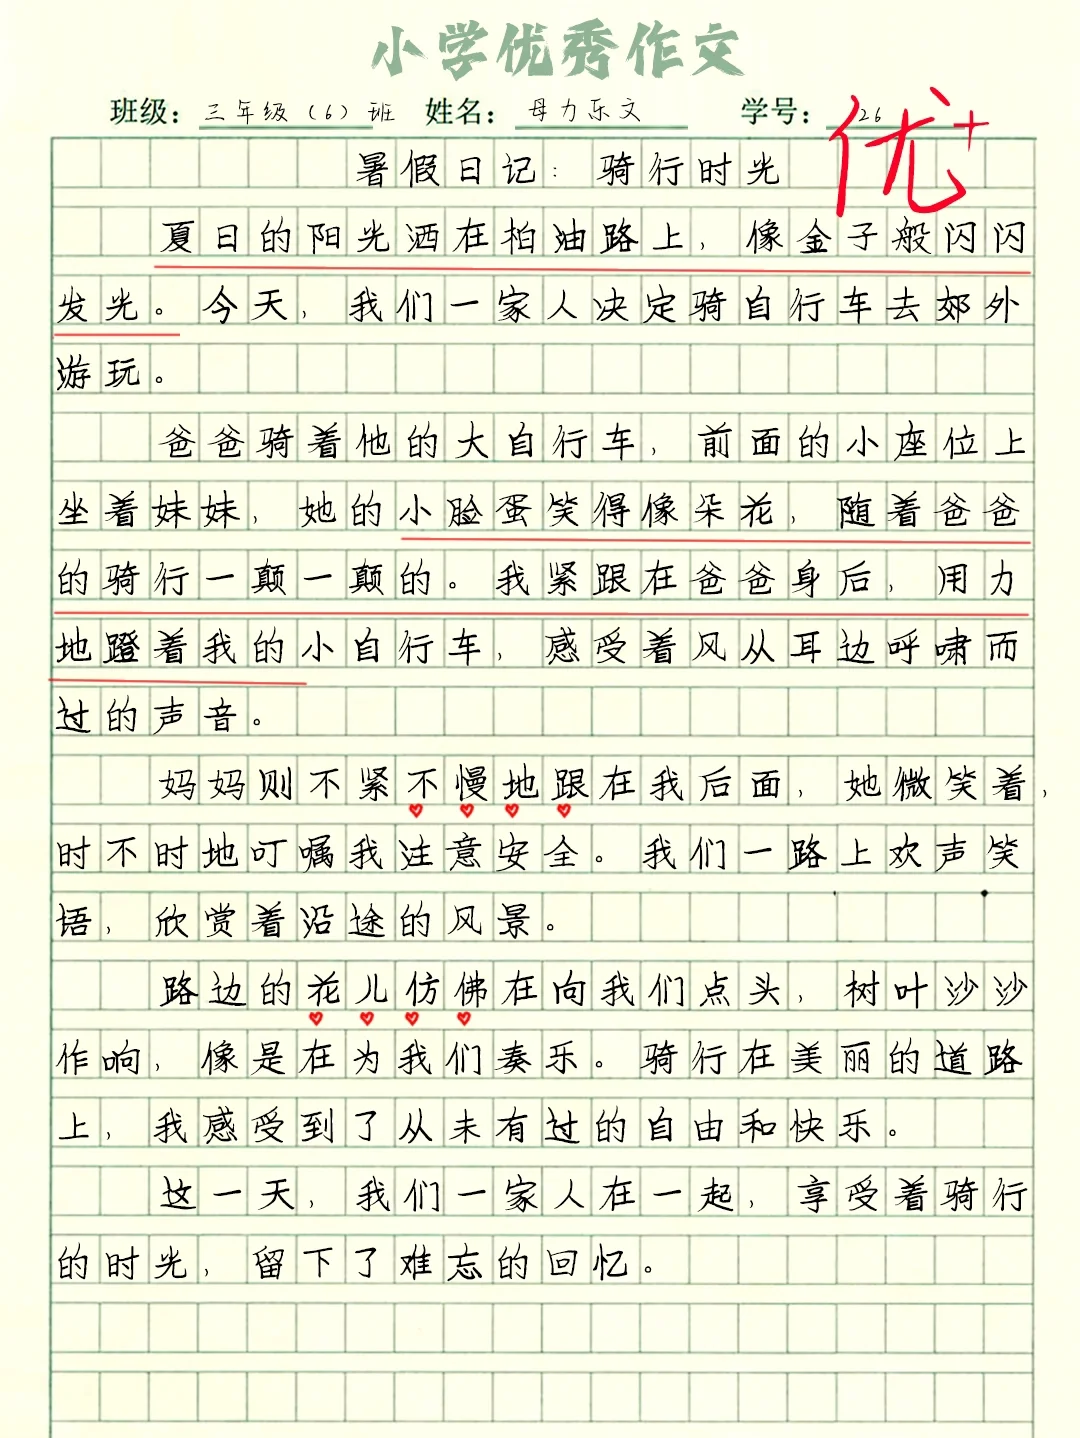 小学优秀作文
班级：三年级（6）班 姓名：母力乐文 学号：26
优+
暑假日记：骑行时光
夏日的阳光洒在柏油路上，像金子般闪闪
发光。今天，我们一家人决定骑自行车去郊外
游玩。
爸爸骑着他的大自行车，前面的小座位上
坐着妹妹，她的小脸蛋笑得像朵花，随着爸爸
的骑行一颠一颠的。我紧跟在爸爸身后，用力
地蹬着我的小自行车，感受着风从耳边呼啸而
过的声音。
妈妈则不紧不慢地跟在我后面，她微笑着，
时不时地叮嘱我注意安全。我们一路上欢声笑
语，欣赏着沿途的风景。
路边的花儿仿佛在向我们点头，树叶沙沙
作响，像是在为我们奏乐。骑行在美丽的道路
上，我感受到了从未有过的自由和快乐。
这一天，我们一家人在一起，享受着骑行
的时光，留下了难忘的回忆。